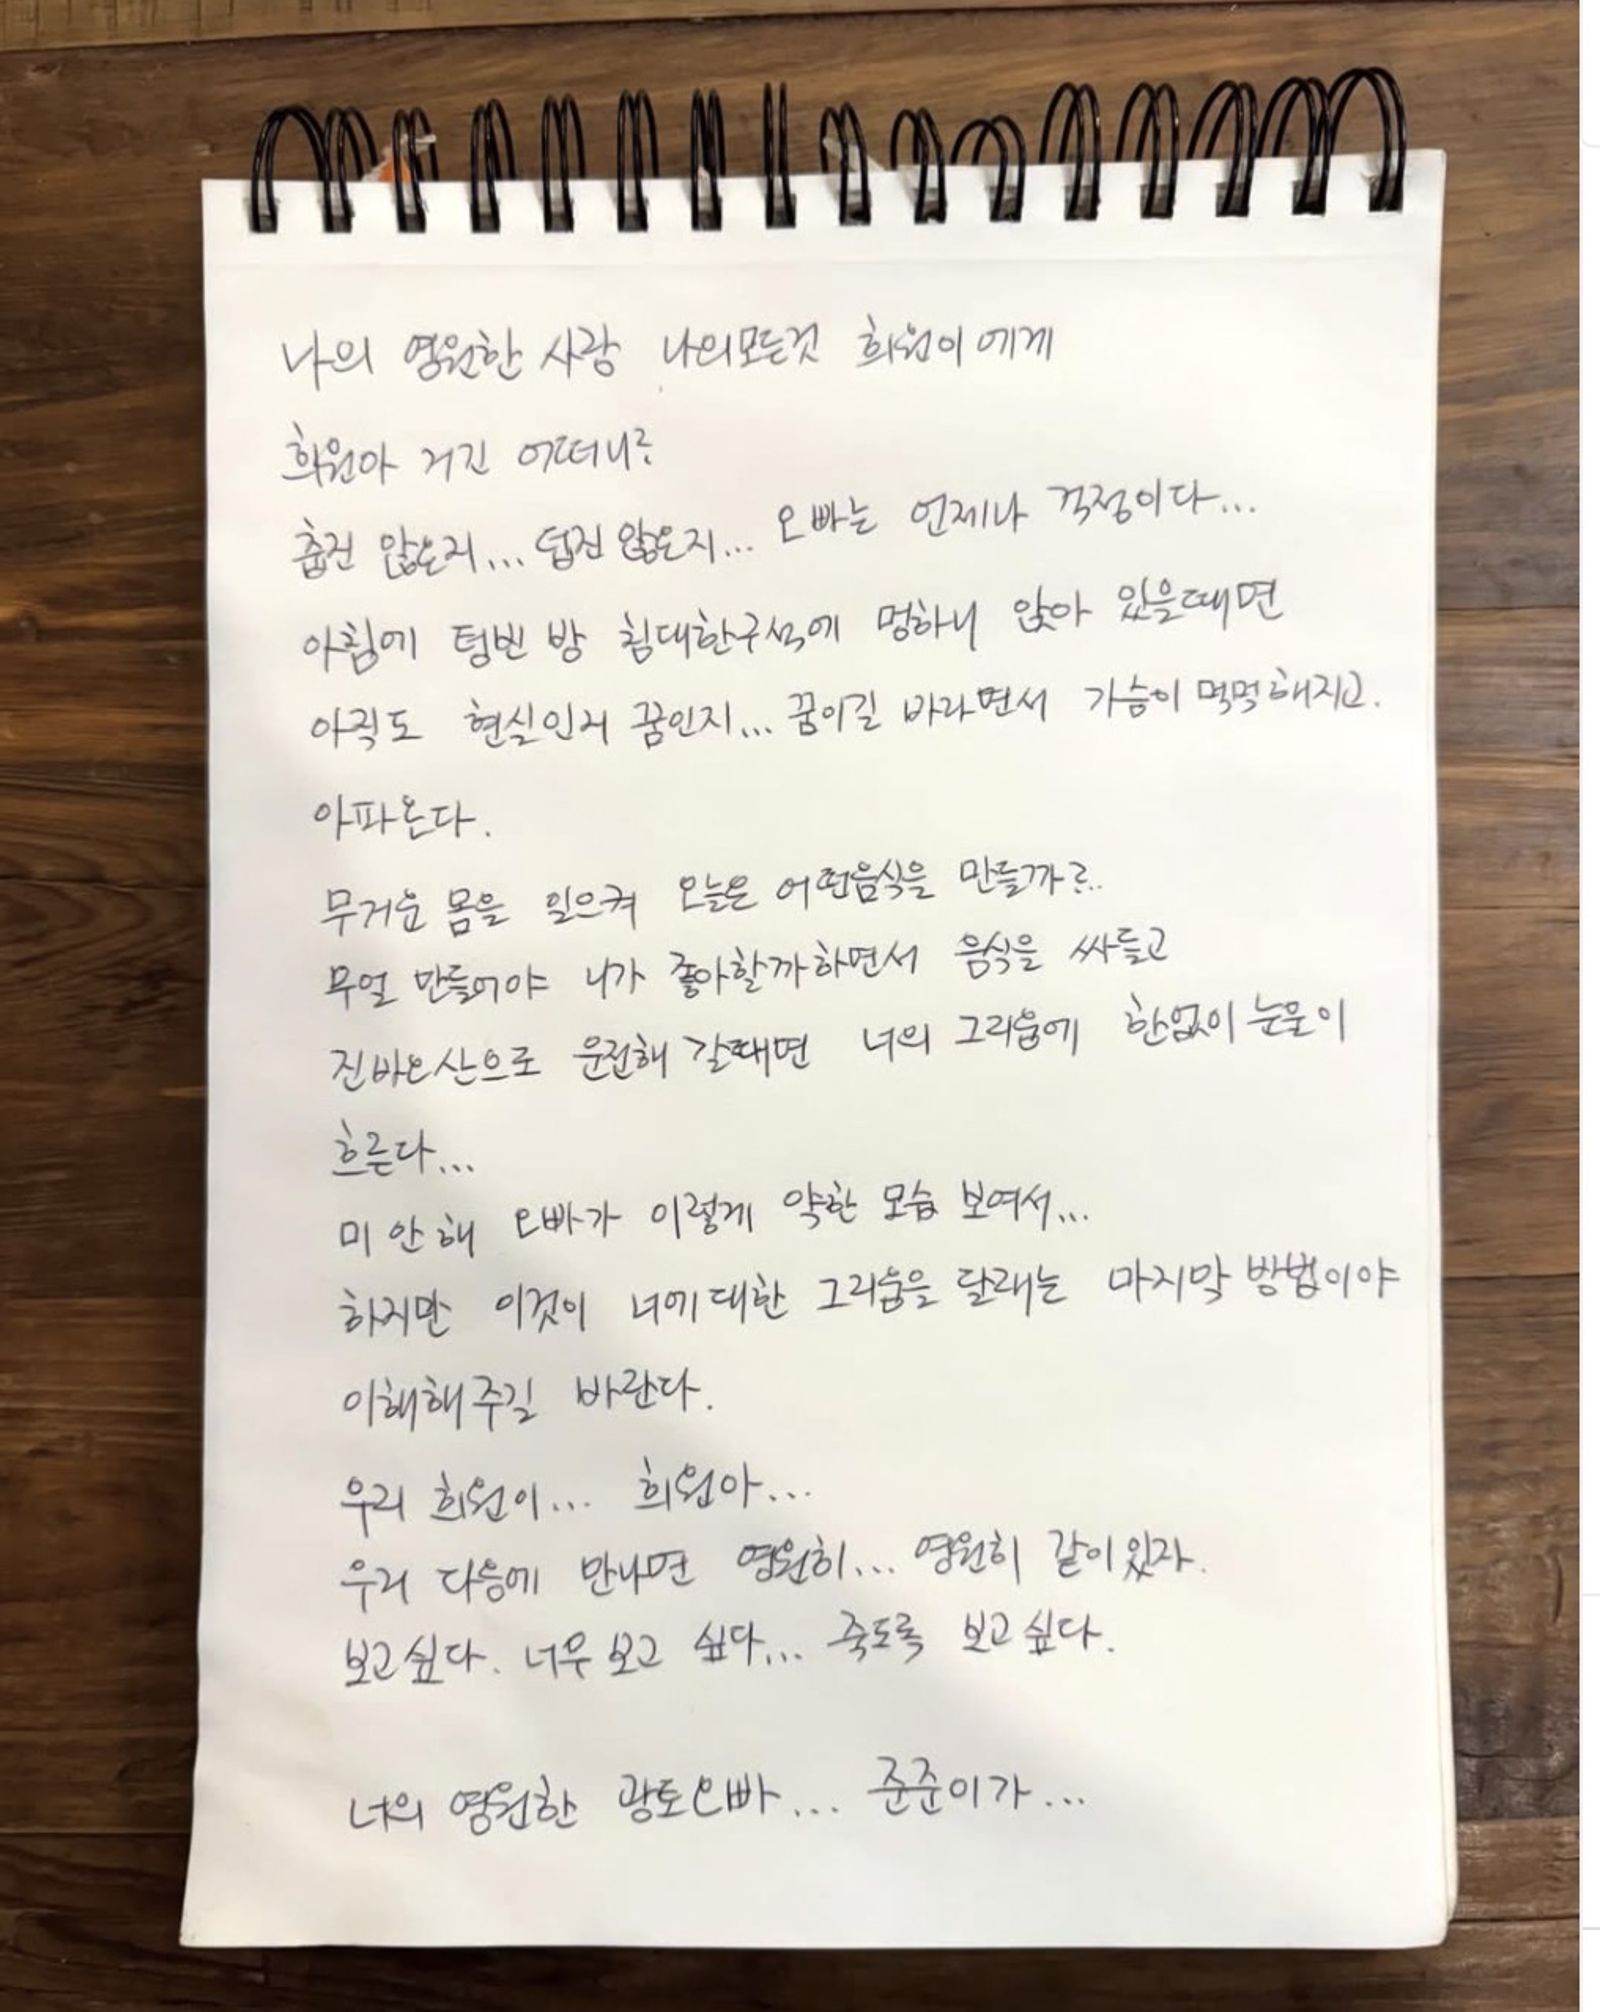 나의 영원한 사랑 나의모든것 희원이에게
희원아 거긴 어떠니?
춥진 않은지... 덥진 않은지... 오빠는 언제나 걱정이다...
아침에 텅빈 방 침대한구석에 멍하니 앉아 있을때면
아직도 현실인지 꿈인지... 꿈이길 바라면서 가슴이 먹먹해지고.
아파온다.
무거운 몸을 일으켜 오늘은 어떤음식을 만들까?..
무얼 만들어야 니가 좋아할까하면서 음식을 싸들고
진바오산으로 운전해 갈때면 너의 그리움에 한없이 눈물이
흐른다...
미안해 오빠가 이렇게 약한 모습 보여서...
하지만 이것이 너에대한 그리움을 달래는 마지막 방법이야
이해해주길 바란다.
우리 희원이... 희원아...
우리 다음에 만나면 영원히... 영원히 같이있자.
보고싶다. 너무보고 싶다... 죽도록 보고싶다.
너의 영원한 광토오빠... 준준이가...